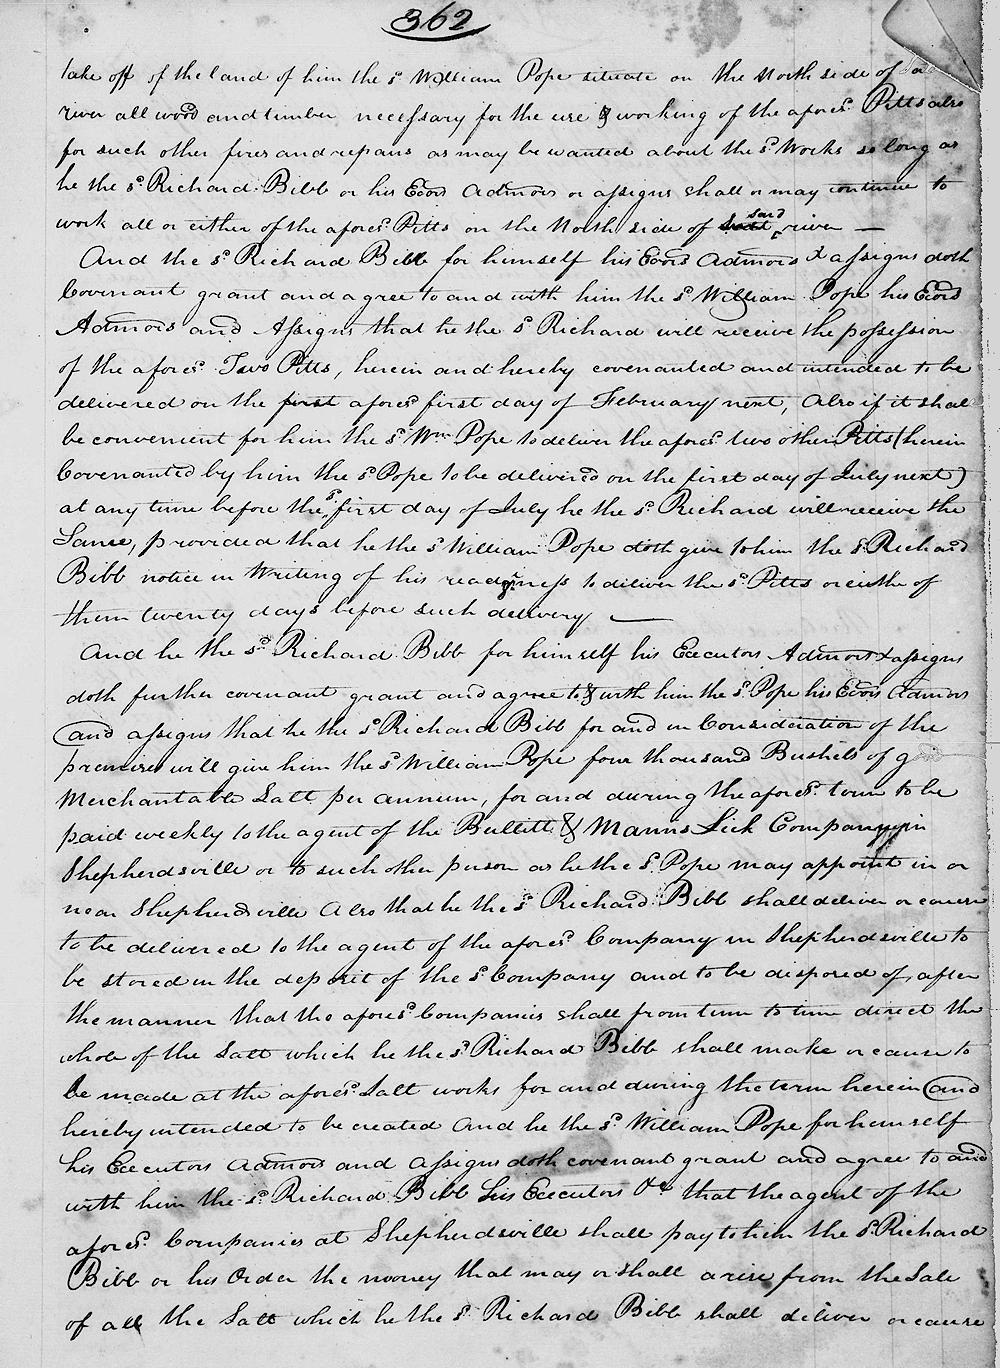 362
take off of the land of him the sd William Pope situate on the North side of sd
river all wood and timber necessary for the use & working of the aforesd Pitts also
for such other fires and repairs as may be wanted about the sd Works so long as
he the sd Richard Bibb or his Exors Admors or assigns shall or may continue to
work all or either of the aforesd Pitts on the North side of said river —
And the sd Richard Bibb for himself his Exors Admors & assigns doth
Covenant grant and agree to and with him the sd William Pope his Exors
Admors and Assigns that he the sd Richard will receive the possession
of the aforesd Two Pitts, herein and hereby covenanted and intended to be
delivered on the first aforesd first day of February next, Also if it shall
be convenient for him the sd Wm Pope to deliver the aforesd two other Pitts (herein
Covenanted by him the sd Pope to be delivered on the first day of July next)
at any time before the sd first day of July he the sd Richard will receive the
Same, provided that he the sd William Pope doth give to him the sd Richard
Bibb notice in Writing of his readyness to deliver the sd Pitts or eithe of
them twenty days before such delivery —
And he the sd Richard Bibb for himself his Executors Admors & assigns
doth further covenant grant and agree to & with him the sd Pope his Exors Admors
and assigns that he the sd Richard Bibb for and in Consideration of the
premises will give him the sd William Pope four thousand Bushels of
Merchantable Salt per annum, for and during the aforesd term to be
paid weekly to the agent of the Bullitt & Manns Lick Company in
Shepherdsville or to such other person as he the sd Pope may appoint in or
near Shepherdsville Also that he the sd Richard Bibb shall deliver or cause
to be delivered to the agent of the aforesd Company in Shepherdsville to
be stored in the deposit of the sd Company and to be disposed of, after
the manner that the aforesd Companies shall from time to time direct the
whole of the Salt which he the sd Richard Bibb shall make or cause to
be made at the aforesd Salt works for and during the term herein and
hereby intended to be created And he the sd William Pope for himself
his Executors Admors and Assigns doth covenant grant and agree to and
with him the sd Richard Bibb his Executors &c that the agent of the
aforesd Companies at Shepherdsville shall pay to him the sd Richard
Bibb or his Order the money that may or shall arise from the Sale
of all the Salt which he the sd Richard Bibb shall deliver or cause